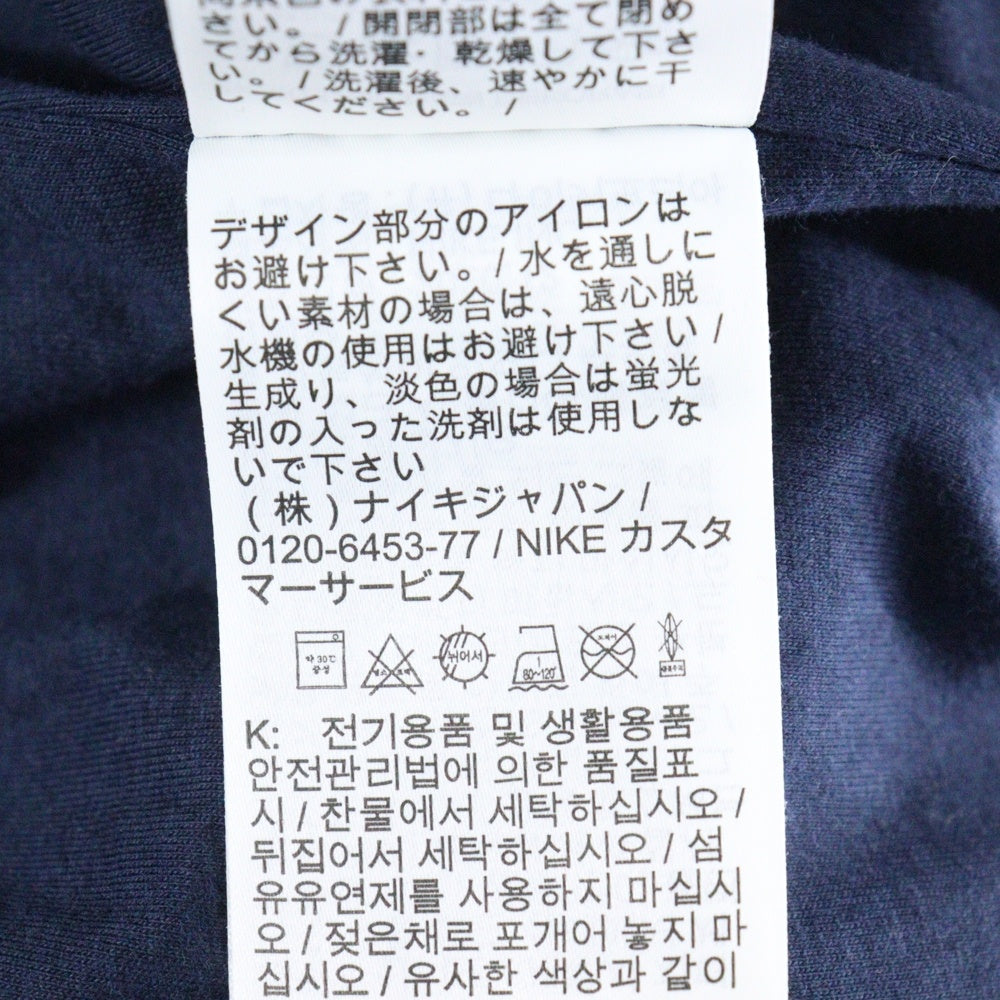 さい。/ 開閉部は全て閉め
てから洗濯・乾燥して下さ
い。/ 洗濯後、速やかに干
してください。/
デザイン部分のアイロンは
お避け下さい。/ 水を通しに
くい素材の場合は、遠心脱
水機の使用はお避け下さい /
生成り、淡色の場合は蛍光
剤の入った洗剤は使用しな
いで下さい
( 株 ) ナイキジャパン /
0120-6453-77 / NIKE カスタ
マーサービス
약 30℃
중성
뉘어서
1
80~120
드라이
K: 전기용품 및 생활용품
안전관리법에 의한 품질표
시 / 찬물에서 세탁하십시오 /
뒤집어서 세탁하십시오 / 섬
유유연제를 사용하지 마십시
오 / 젖은채로 포개어 놓지 마
십시오 / 유사한 색상과 같이